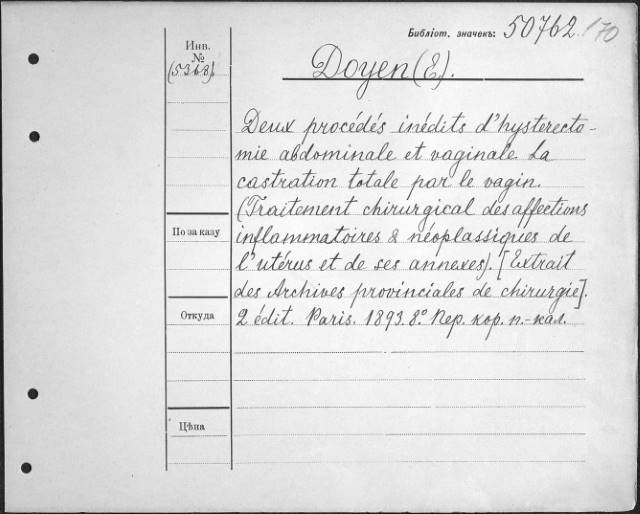 Библіот. значекъ: 50762 170
Инв.
№
(5368).
Doyen (E).
Deux procédés inédits d'hysterecto-
mie abdominale et vaginale La
castration totale par le vagin.
(Traitement chirurgical des affections
По заказу
inflammatoires & néoplassiques de
l'utérus et de ses annexes). [Extrait
des Archives provinciales de chirurgie].
Откуда
2 édit. Paris. 1893. 8°. Пер. кор. п.-кал.
Цѣна